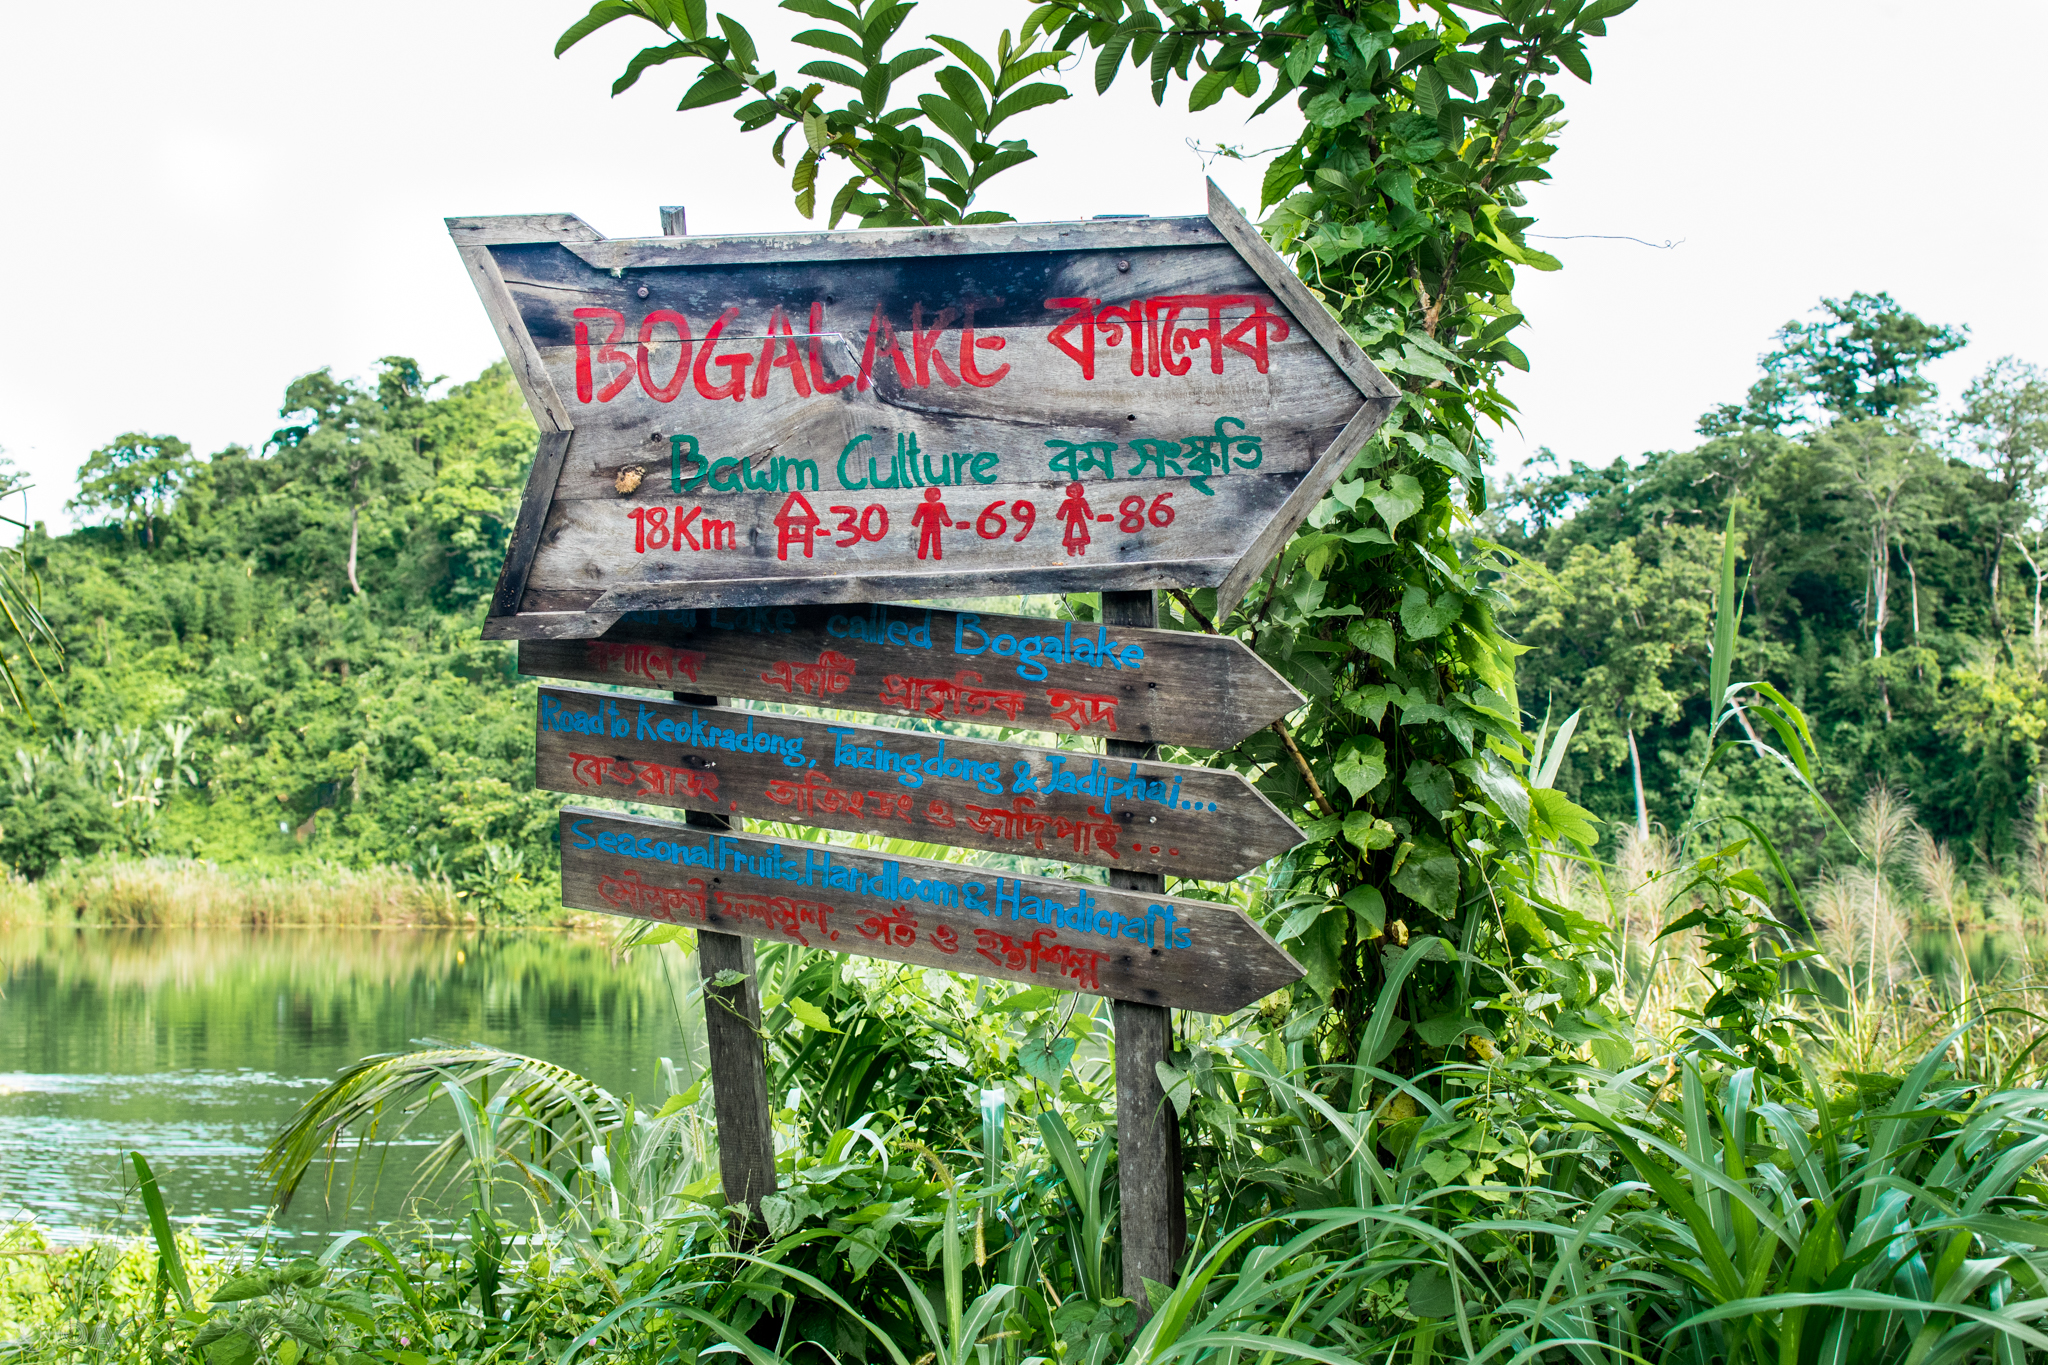 BOGALAKE বগালেক
Bawm Culture বম সংস্কৃতি
18Km -30 -69 -86
Lake called Bogalake
বগালেক একটি প্রাকৃতিক হৃদ
Road to Keokradong, Tazingdong & Jadiphai...
কেওক্রাডং, তাজিংডং ও জাদিপাই...
Seasonal Fruits, Handloom & Handicrafts
মৌসুমী ফলমূল, তাঁত ও হস্তশিল্প